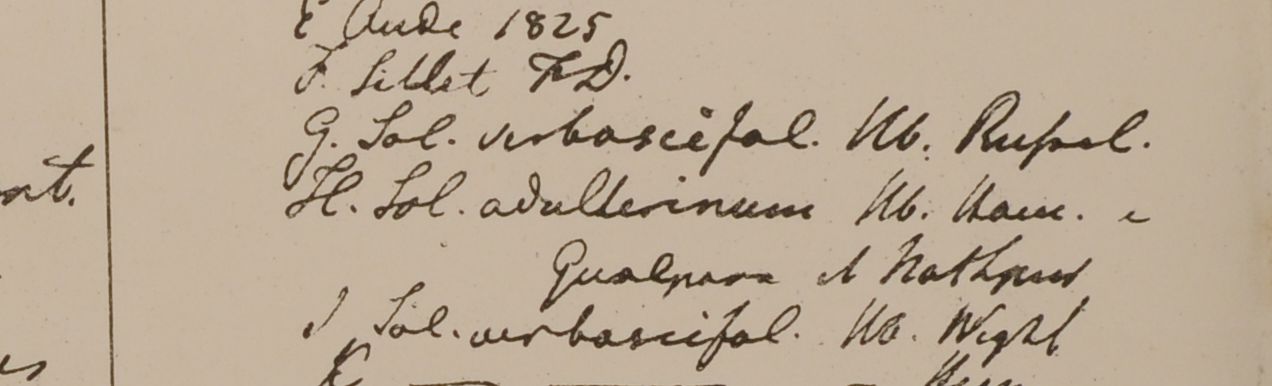 E Oude 1825
F. Sillet F.D.
G. Sol. verbascifol. Hb. Russel.
nt.
H. Sol. adulterinum Hb. Ham. e
Gualpara et Nathpur
I Sol. verbascifol. Hb. Wight
K